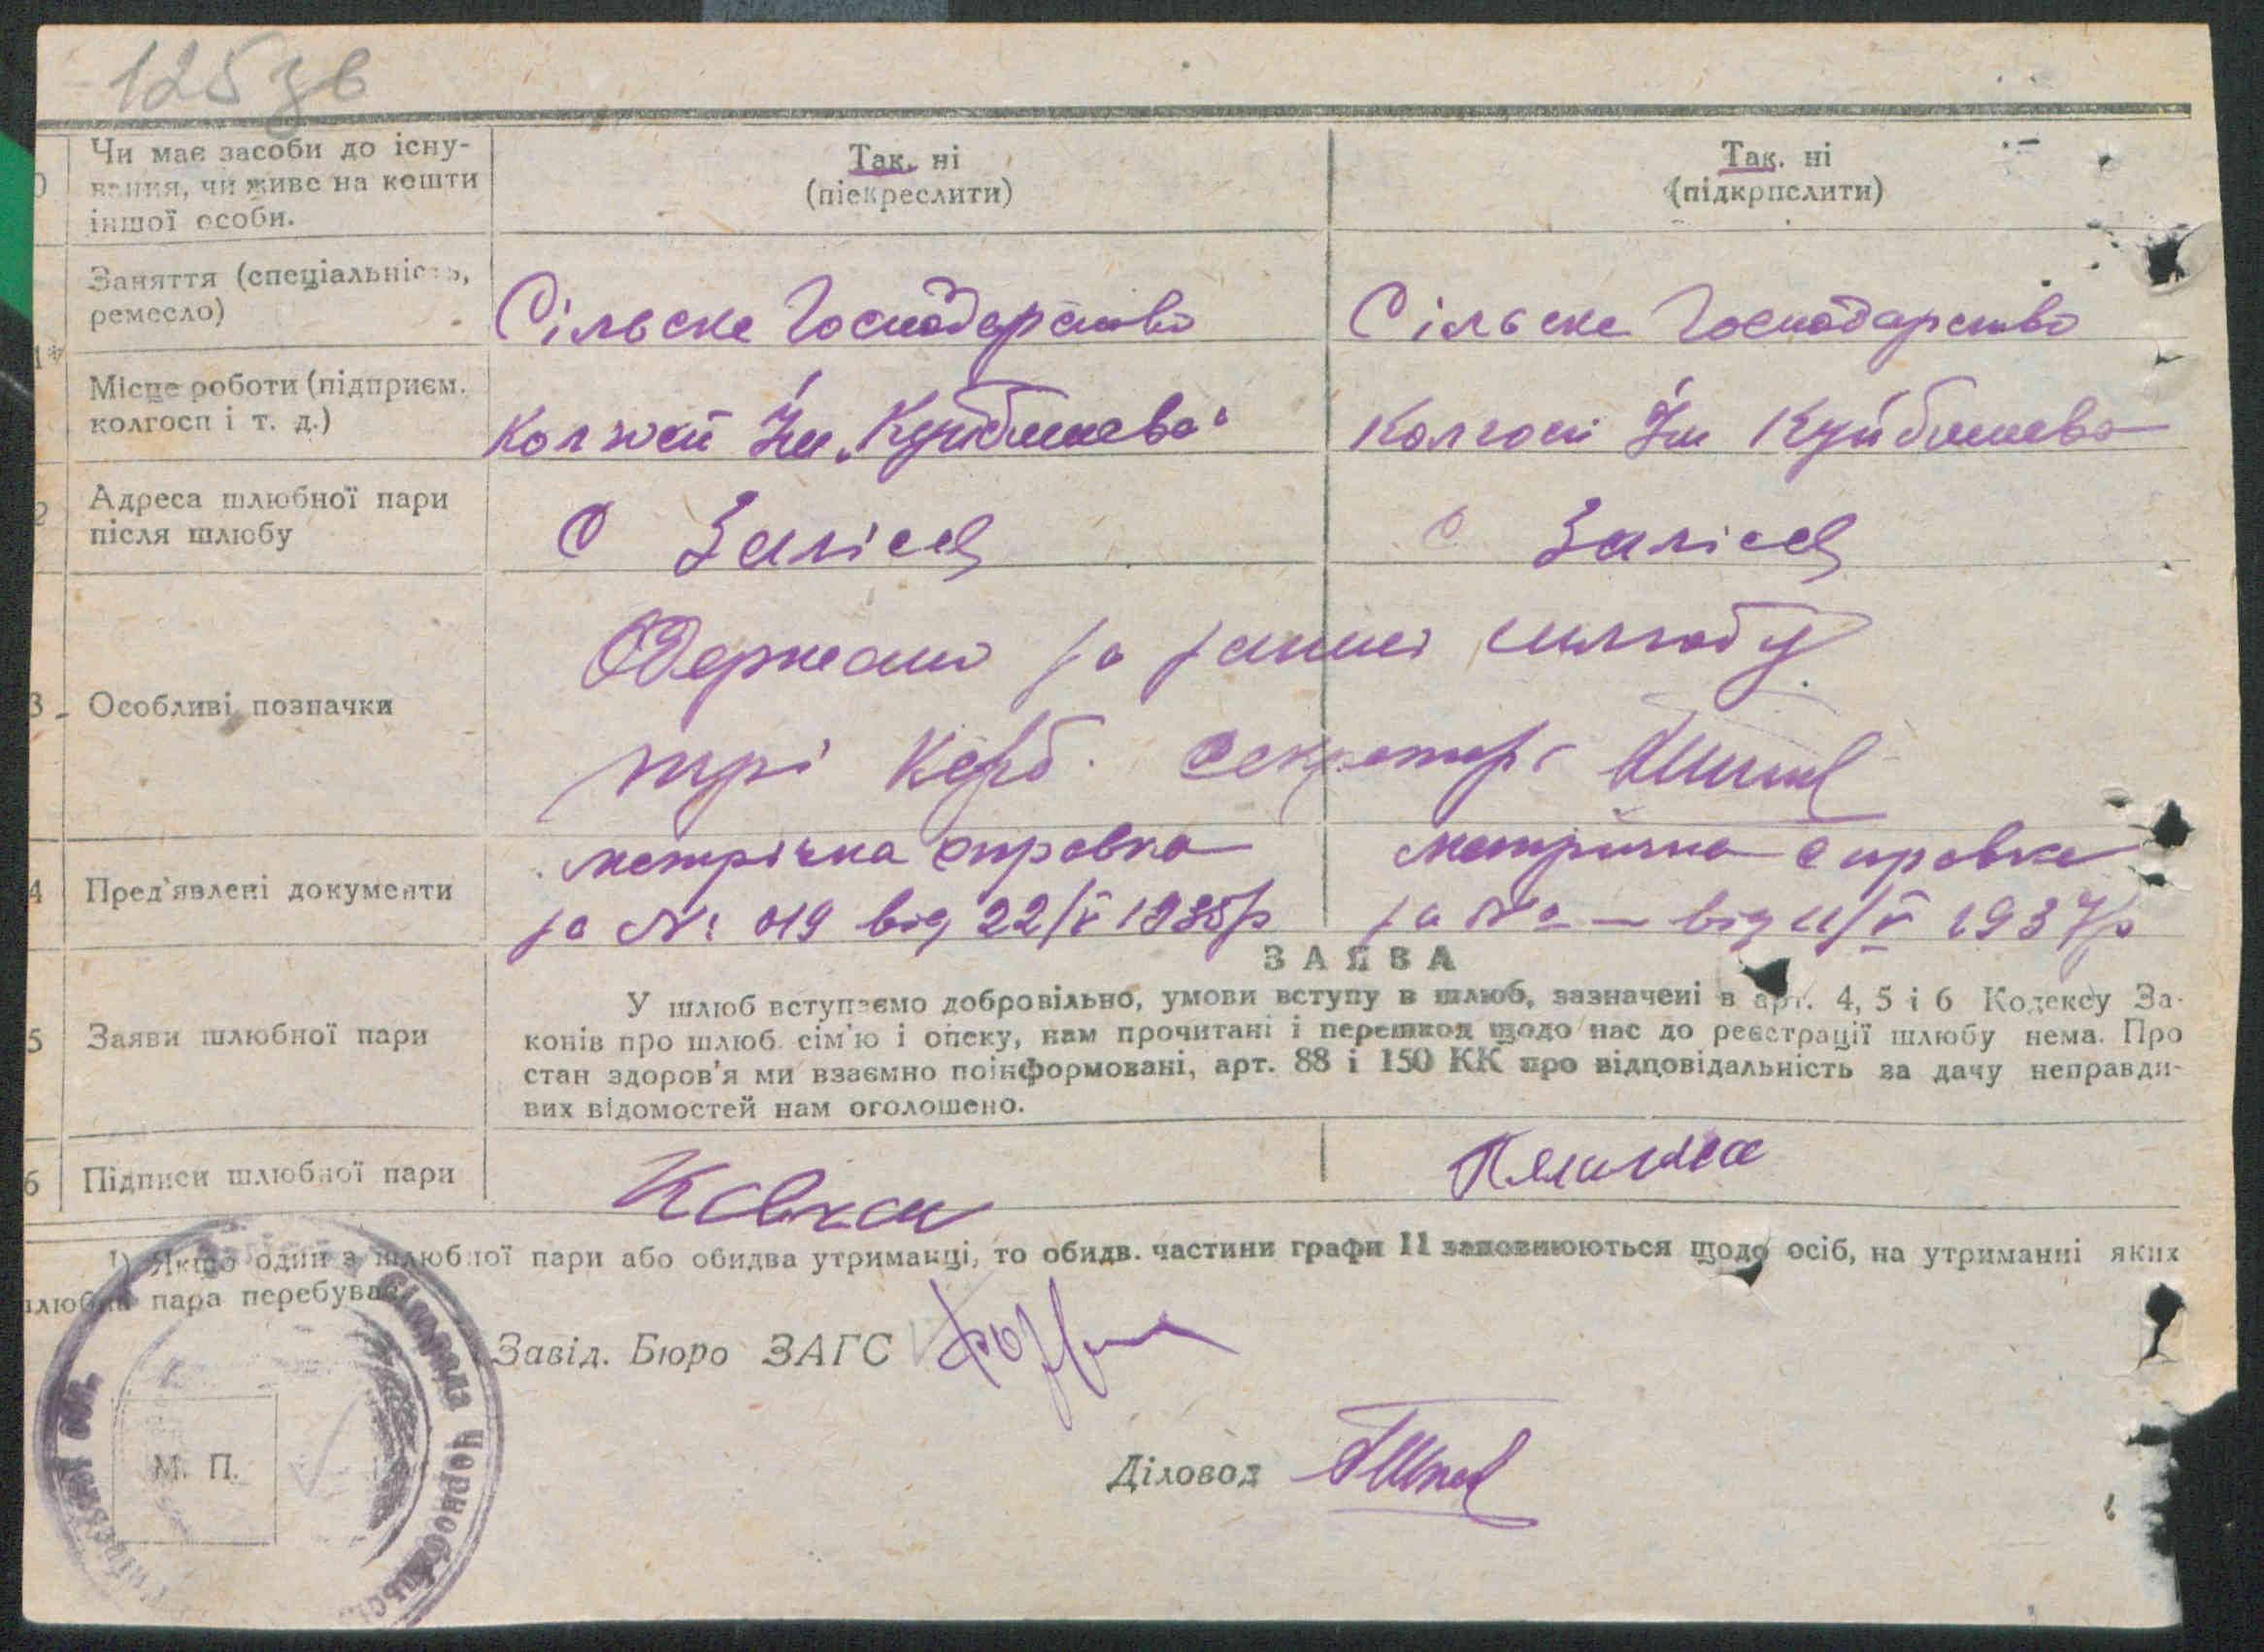 125 зв
Чи має засоби до існу-
вання, чи живе на кошти
іншої особи.
Так. ні
(піекреслити)
Так. ні
(підкрпслити)
Заняття (спеціальність,
ремесло)
Сільске Господарство
Сільске Господарство
1*
Місце роботи (підприєм.
колгосп і т. д.)
Ім. „Куйбишева“
Колгосп Ім Куйбишева
2
Адреса шлюбної пари
після шлюбу
С Заліся
С Заліся
3
Особливі позначки
Одержано за запис шлюбу
трі карб. секретарь
4
Пред'явлені документи
метрічна справка
за № 019 від 22/V 1935р
метрична справка
за № — від 11/V 1937р
ЗАЯВА
5
Заяви шлюбної пари
У шлюб вступаємо добровільно, умови вступу в шлюб, зазначені в арт. 4, 5 і 6 Кодексу За-
конів про шлюб. сім'ю і опеку, нам прочитані і перешкод щодо нас до реєстрації шлюбу нема. Про
стан здоров'я ми взаємно поінформовані, арт. 88 і 150 КК про відповідальність за дачу неправди-
вих відомостей нам оголошено.
6
Підписи шлюбної пари
1) Якщо один з шлюбної пари або обидва утриманці, то обидв. частини графи 11 заповнюються щодо осіб, на утриманні яких
шлюбна пара перебуває.
Завід. Бюро ЗАГС
М. П.
Діловод
Сільрада Чорнобильс